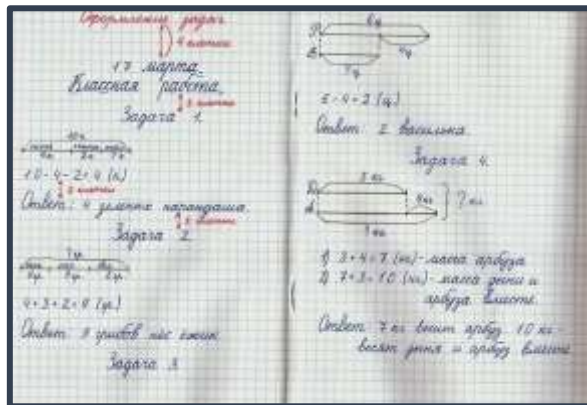 Оформление задач
4 клетки
17 марта.
Классная работа.
2 клетки
Задача 1.
10 к.
4 к. 2 к. ? к.
10 - 4 - 2 = 4 (к)
2 клетки
Ответ: 4 зеленых карандаша.
2 клетки
Задача 2.
? гр.
4 гр. 3 гр. 2 гр.
4 + 3 + 2 = 9 (гр.)
Ответ: 9 грибов нёс ёжик.
Задача 3.
6 ц
Р
4 ц
В
? ц
6 - 4 = 2 (ц)
Ответ: 2 василька.
Задача 4.
3 кг
Д
4 кг
? кг
А
? кг
1) 3 + 4 = 7 (кг) - масса арбуза
2) 7 + 3 = 10 (кг) - масса дыни и
арбуза вместе.
Ответ: 7 кг весит арбуз. 10 кг
весят дыня и арбуз вместе.